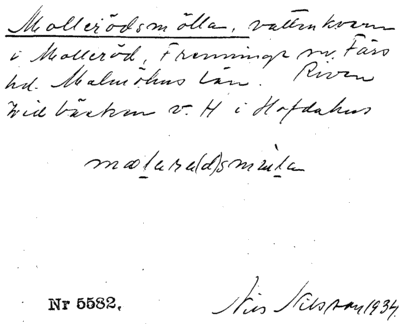 Mollerödsmölla, vattenkvarn
i Molleröd, Frenninge sn. Färs
hd. Malmöhus län. Riven
Vid bäcken v. H i Hofdahus
Nr 5582.
Nils Nilsson 1934.